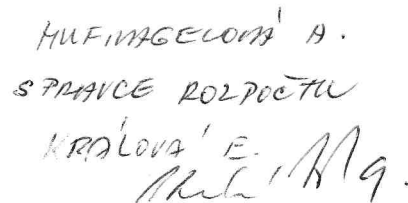 HUFNAGELOVÁ A.
SPRÁVCE ROZPOČTU
KRÁLOVÁ E.